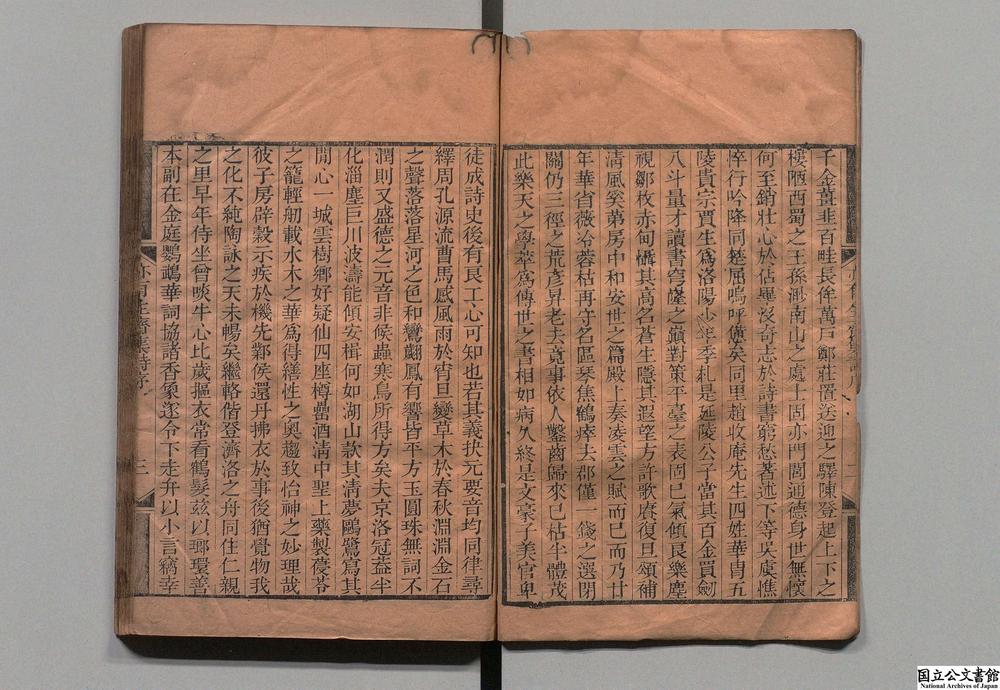 千金薑韭百畦長侔萬戶鄭莊置送迎之驛陳登起上下之
樓陋西蜀之王孫渺南山之處士固亦門閥通德身世無懷
何至銷壯心於佔畢沒奇志於詩書窮愁著述下等吳虞憔
悴行吟降同楚屈嗚呼憊矣同里趙收庵先生四姓華冑五
陵貴宗賈生爲洛陽少年季札是延陵公子當其百金買劒
八斗量才讀書穹窿之巔對策平臺之表固已氣傾艮樂塵
視鄒枚赤甸懾其高名蒼生隱其遐望方許歌賡復旦頌補
淸風奚第房中和安世之篇殿上奏凌雲之賦而已而乃廿
年華省薇冷蓉枯再守名區琴焦鶴瘁去郡僅一錢之選閉
關仍三徑之荒彥昇老去竟事依人鑿齒歸來已枯半體茂
此樂天之學萃爲傳世之書相如病久終是文豪子美官卑
徒成詩史後有良工心可知也若其義抉元要音均同律尋
繹周孔源流曹馬感風雨於宵旦變草木於春秋淵淵金石
之聲落落星河之色和鸞翽鳳有響皆平方玉圓珠無詞不
潤則又盛德之元音非候蟲寒鳥所得方矣夫京洛冠蓋半
化淄塵巨川波濤能傾安楫何如湖山款其淸夢鷗鷺寫其
閒心一城雲樹鄉好疑仙四座樽罍酒淸中聖上藥製蓡苓
之籠輕舠載水木之華爲得繕性之奧趨致怡神之妙理哉
彼子房辟穀示疾於機先鄴侯還丹拂衣於事後猶覺物我
之化不純陶詠之天未暢矣繼輅偕登濟洛之舟同住仁親
之里早年侍坐曾啖牛心比歲摳衣常看鶴髮玆以瑯環善
本副在金庭鸚鵡華詞協諸香象逐令下走弁以小言竊幸
三
国立公文書館
National Archives of Japan